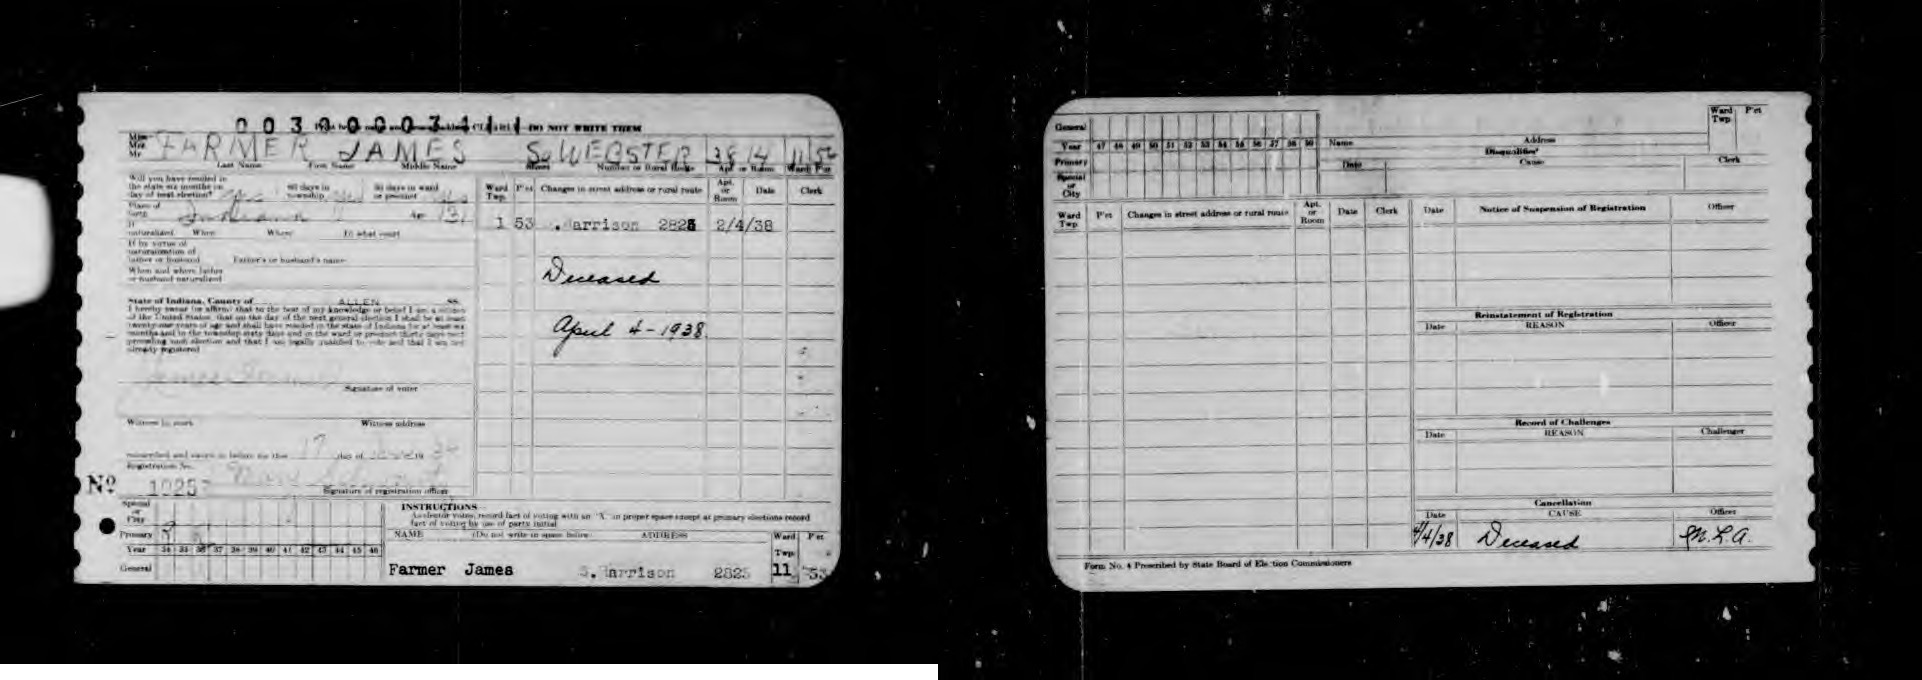 DO NOT WRITE THEM
Miss
Mrs.
Mr. FARMER JAMES So WEBSTER 3814 11 52
Last Name First Name Middle Name Street Number or Rural Route Apt. or Room Ward P'ct
Will you have resided in
the state six months on
day of next election? Yes 60 days in township Yes 30 days in ward or precinct Yes
Place of
birth Indiana Age
If
naturalized When Where In what court
If by virtue of
naturalization of
father or husband Father's or husband's name
When and where father
or husband naturalized
State of Indiana, County of ALLEN SS.
I hereby swear (or affirm) that to the best of my knowledge or belief I am a citizen
of the United States, that on the day of the next general election I shall be at least
twenty-one years of age and shall have resided in the state of Indiana for at least six
months and in the township sixty days and in the ward or precinct thirty days next
preceding such election and that I am legally qualified to vote and that I am not
already registered
James Farmer
Signature of voter
Witness to mark Witness address
Subscribed and sworn to before me this 17 day of 19 34
Registration No.
No 1025
Signature of registration officer
Ward Twp. P'ct Changes in street address or rural route Apt. or Room Date Clerk
1 53 .Harrison 2825 2/4/38
Deceased
April 4-1938.
Special
or
City
Primary
Year 34 35 36 37 38 39 40 41 42 43 44 45 46
General
INSTRUCTIONS
As elector votes, record fact of voting with an "X" in proper space except at primary elections record
fact of voting by use of party initial
NAME (Do not write in space below) ADDRESS Ward Twp. P'ct
Farmer James S. Harrison 2825 11 53
General
Year 47 48 49 50 51 52 53 54 55 56 57 58 59
Primary
Special
or
City
Name Address Ward Twp. P'ct
Disqualified
Date Cause Clerk
Ward Twp. P'ct Changes in street address or rural route Apt. or Room Date Clerk
Date Notice of Suspension of Registration Officer
Reinstatement of Registration
Date REASON Officer
Record of Challenges
Date REASON Challenger
Cancellation
Date CAUSE Officer
4/4/38 Deceased M.L.A.
Form No. 4 Prescribed by State Board of Election Commissioners